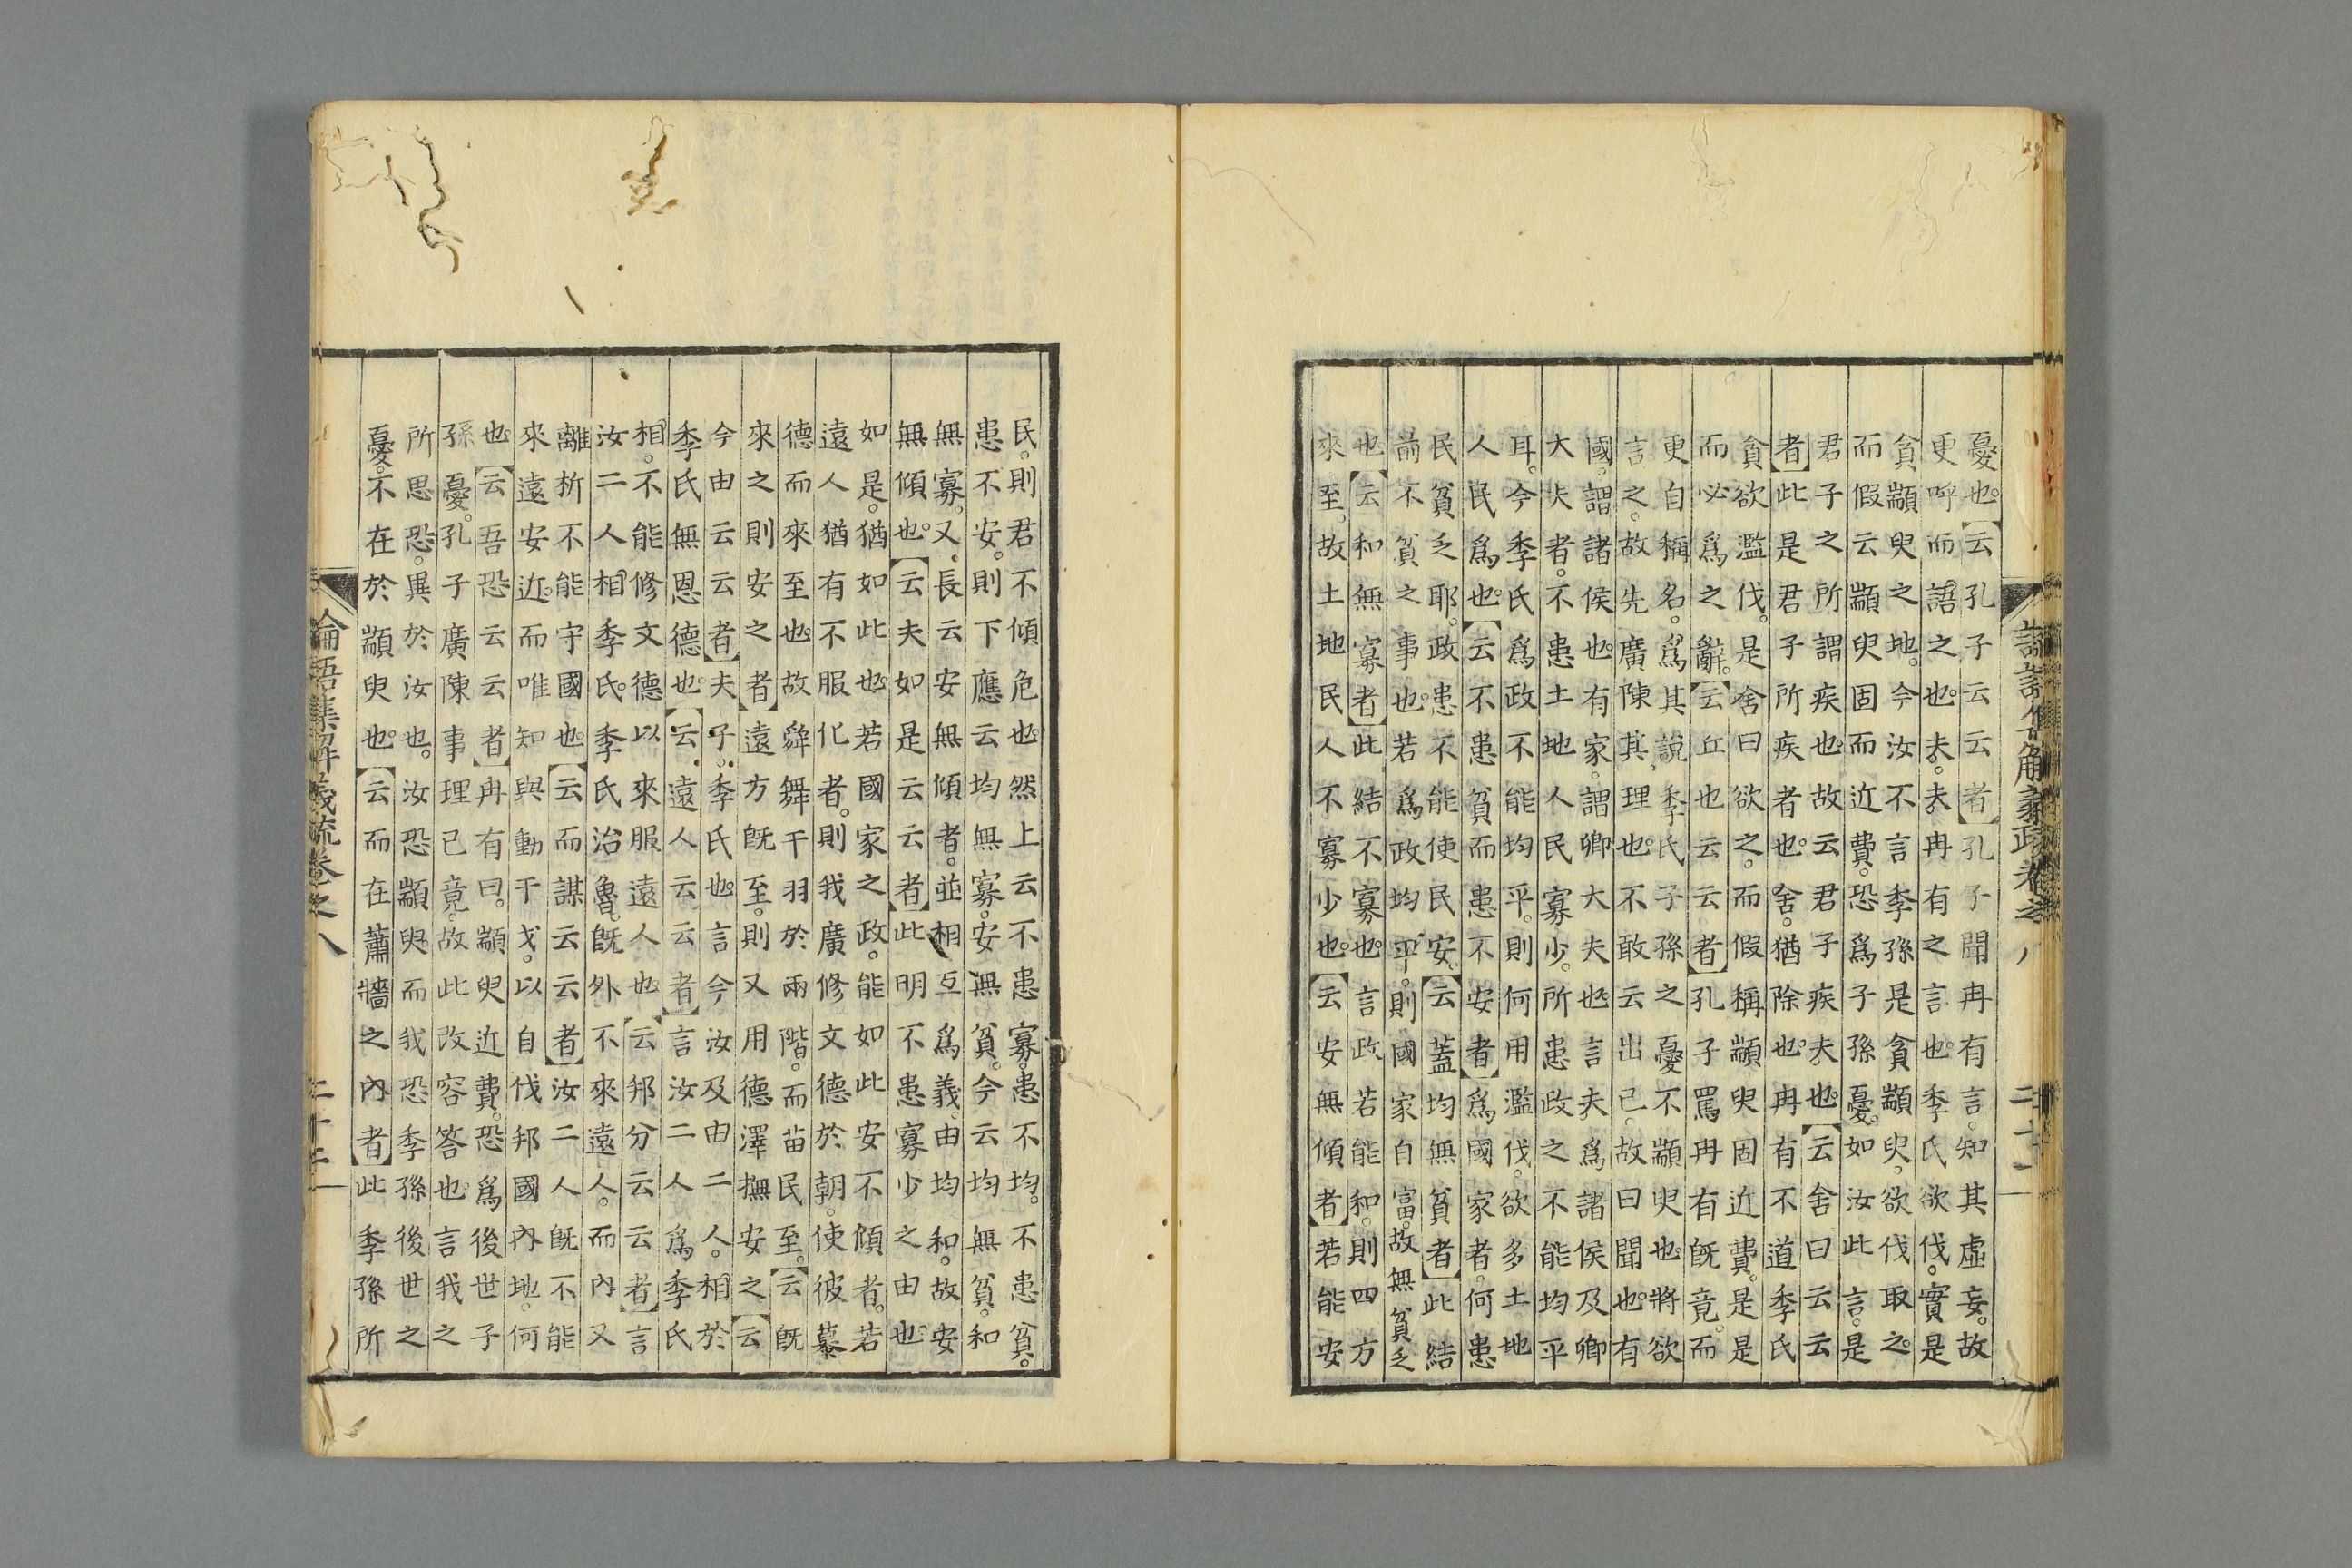 憂也。云孔子云云者孔子聞冉有言。知其虛妄。故
更呼而語之也。夫。夫冉有之言也。季氏欲伐。實是
貪顓臾之地。今汝不言季孫是貪顓臾。欲伐取之。
而假云顓臾固而近費。恐爲子孫憂。如汝此言。是
君子之所謂疾也。故云君子疾夫。也。云舍曰云云
者此是君子所疾者也。舍。猶除也。冉有不道季氏
貪欲濫伐。是舍曰欲之。而假稱顓臾固近費。是是
而必爲之辭。云丘也云云者孔子罵冉有既竟。而
更自稱名。爲其說季氏子孫之憂不顓臾也。將欲
言之。故先廣陳其理也。不敢云出已。故曰聞也。有
國。謂諸侯也。有家。謂卿大夫也。言夫爲諸侯及卿
大夫者。不患土地人民寡少。所患政之不能均平
耳。今季氏爲政不能均平。則何用濫伐。欲多土地
人民爲也。云不患貧而患不安者爲國家者。何患
民貧乏耶。政患不能使民安。云蓋均無貧者此結
前不貧之事也。若爲政均平。則國家自富。故無貧乏
也云和無寡者此結不寡也。言政若能和。則四方
來至。故土地民人不寡少也。云安無傾者若能安
民。則君不傾危也然上云不患寡。患不均。不患貧。
患不安。則下應云均無寡。安無貧。今云均無貧。和
無寡。又長云安無傾者。並相互爲義。由均和。故安
無傾也。云夫如是云云者此明不患寡少之由也。
如是。猶如此也。若國家之政。能如此安不傾者。若
遠人猶有不服化者。則我廣修文德於朝。使彼慕
德而來至也。故舜舞干羽於兩階。而苗民至。云既
來之則安之者遠方既至。則又用德澤撫安之云
今由云云者夫子。季氏也。言今汝及由二人。相於
季氏無恩德也。云遠人云云者言汝二人爲季氏
相。不能修文德以來服遠人也云邦分云云者言
汝二人相季氏。季氏治魯。既外不來遠人。而內又
離析不能守國也。云而謀云云者汝二人既不能
來遠安近。而唯知與動干戈。以自伐邦國內地。何
也。云吾恐云云者冉有曰。顓臾近費。恐爲後世子
孫憂。孔子廣陳事理已竟。故此改容答也。言我之
所思恐。異於汝也。汝恐顓臾。而我恐季孫後世之
憂。不在於顓臾也。云而在蕭牆之內者此季孫所
論語集解義疏卷之八 二十二